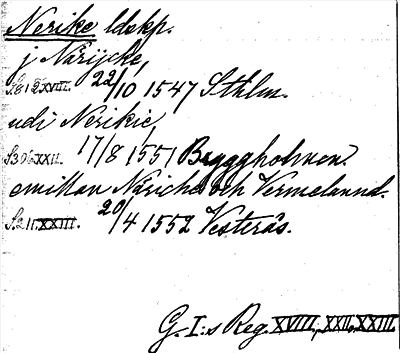 Nerike ldskp.
j Närijcke,
S. 812 XVIII. 22/10 1547 Sthlm.
udi Nerikie,
S. 306 XXII. 17/8 1551 Bryggholmen.
emillan Näriche och Vermelannd.
S. 211 XXIII. 20/4 1552 Vesterås.
G. I:s Reg. XVIII, XXII, XXIII.